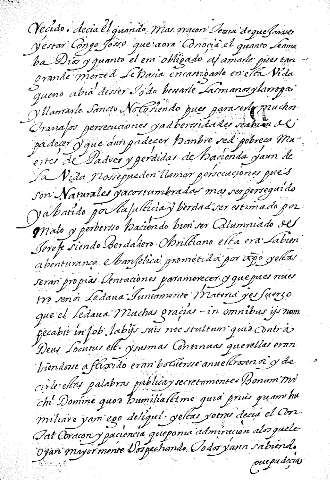 Vecido. decia el quando mas
y estar Congo sosso que aora Conocia el quanto le ama
ba Dios y quanto el era obligado a amarle pues tan
grande merced le hacia en castigarle en esta Vida
y llamarle Sancto Notoriendo pues para este mucho
trauajos persecuciones y adversidades
padecer y que aun padecer hambre sed pobresa Mu
ertes de Padres y perdidas de hacienda y aun de
la Vida no se pueden llamar persecuciones pues
son Naturales y acostumbradas mas ser perseguido
y abatido por la justicia y berdad ser estimado por
Malo y perberso haciendo bien ser Calumniado de
siendo Berdadero Christiano esta era la bien
abenturança Evangelica prometida por xpo y estas
eran propias tentaciones para merecer y que pues nues
tro señor le daua juntamente Materia y esfuerço
que el le daua Muchas gracias - in omnibus iis non
pecabit in Job labijs suis nec stultum quid Contra
Deus Locutus est - y sus mas Continuas querellas eran
biendose afligido eran bolberse a nuestro señor y de
cirle estas palabras publica y secretamente Bonum mi
chi Domine quod humiliasti me quia prius quam hu
miliare y am ego deliqui - y estas y otras decia el Con
tal Coraçon y paciencia que ponia admiracion a los que le
oyan mayormente sospechando. Todos y aun sabiendo
que padecia